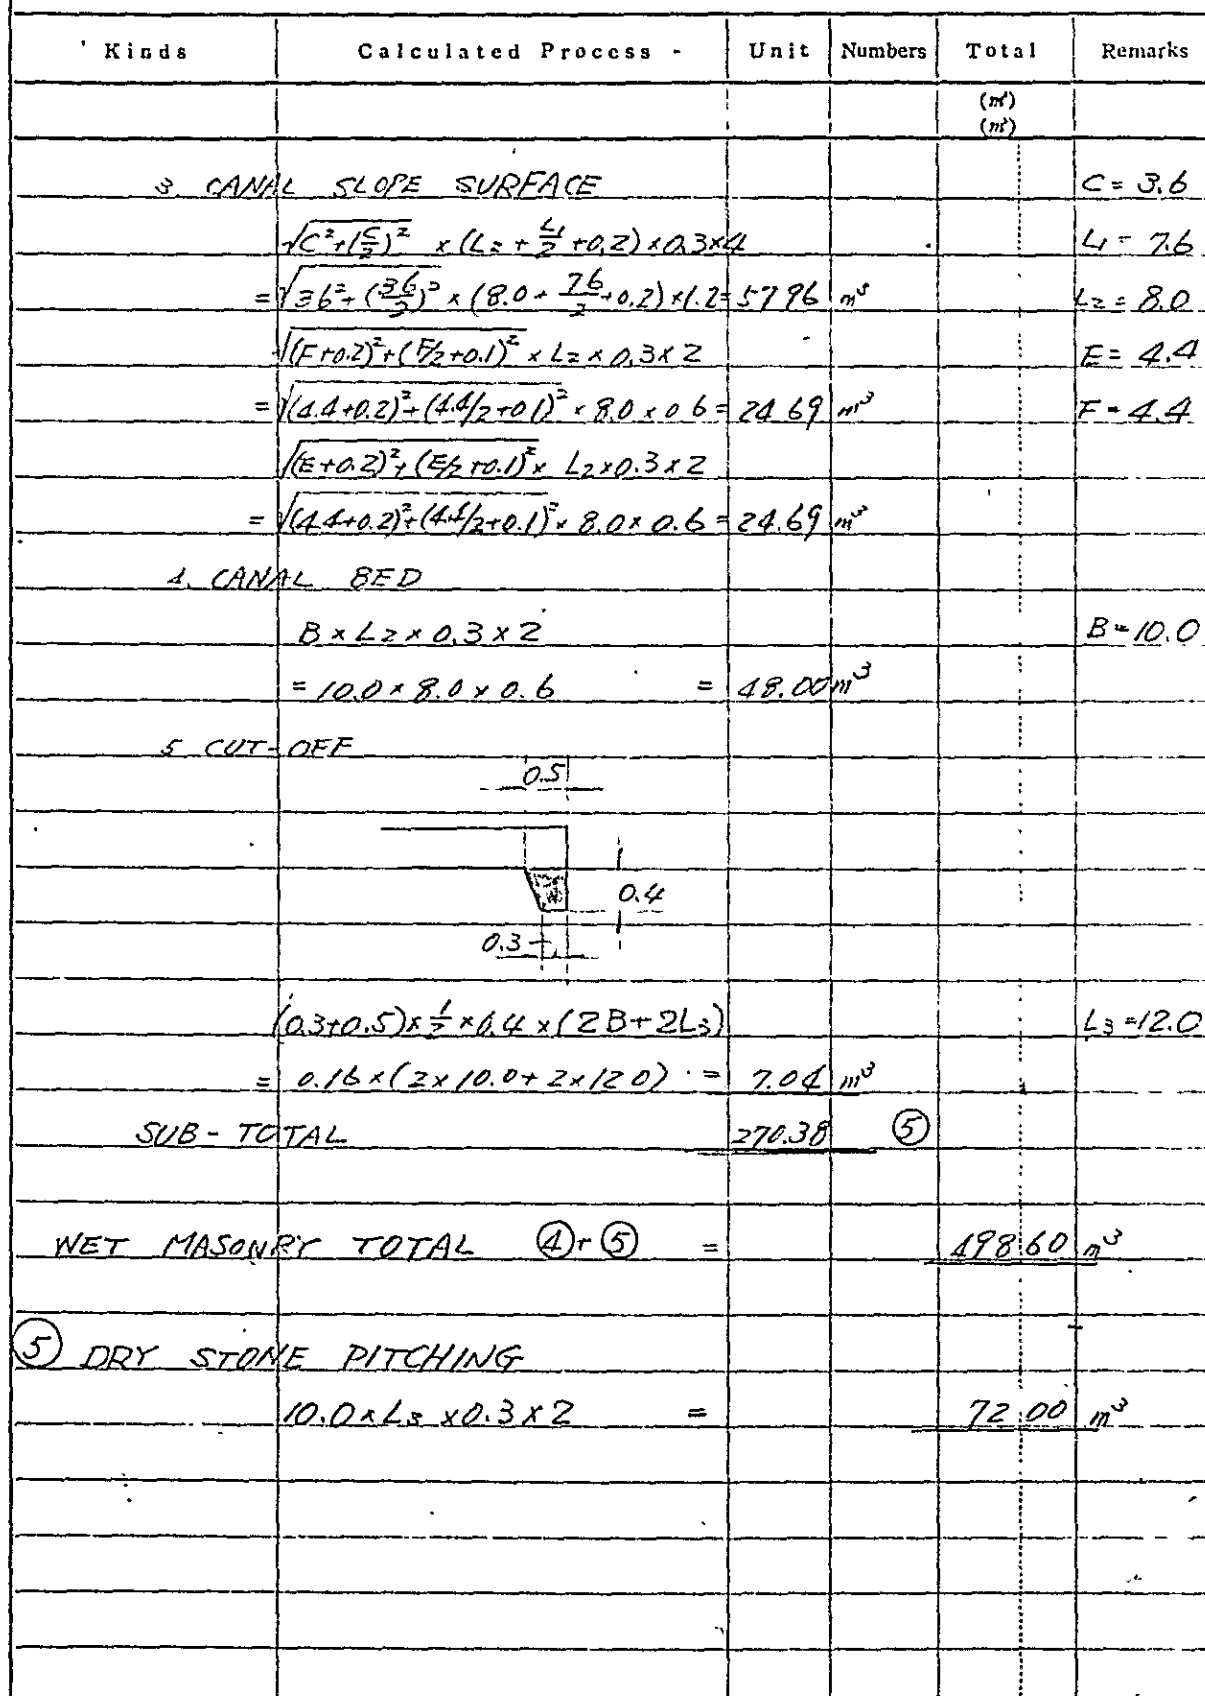 Kinds Calculated Process - Unit Numbers Total Remarks
(m²)
(m³)
3. CANAL SLOPE SURFACE C = 3.6
√C²+(C/2)² × (L2 + L1/2 +0.2) × 0.3×4 L1 = 7.6
= √3.6²+(3.6/2)² × (8.0 + 7.6/2 +0.2) ×1.2 = 57.96 m³ L2 = 8.0
√(F+0.2)²+(F/2+0.1)² × L2 × 0.3 × 2 E = 4.4
= √(4.4+0.2)²+(4.4/2+0.1)² × 8.0 × 0.6 = 24.69 m³ F = 4.4
√(E+0.2)²+(E/2+0.1)² × L2×0.3×2
= √(4.4+0.2)²+(4.4/2+0.1)² × 8.0 × 0.6 = 24.69 m³
4. CANAL BED
B × L2 × 0.3 × 2 B = 10.0
= 10.0 × 8.0 × 0.6 = 48.00 m³
5 CUT-OFF
0.5
0.4
0.3
(0.3+0.5)×1/2×0.4×(2B+2L3) L3 = 12.0
= 0.16×(2×10.0+2×12.0) = 7.04 m³
SUB-TOTAL 270.38 ⑤
WET MASONRY TOTAL ④+⑤ = 498.60 m³
⑤ DRY STONE PITCHING
10.0×L3×0.3×2 = 72.00 m³